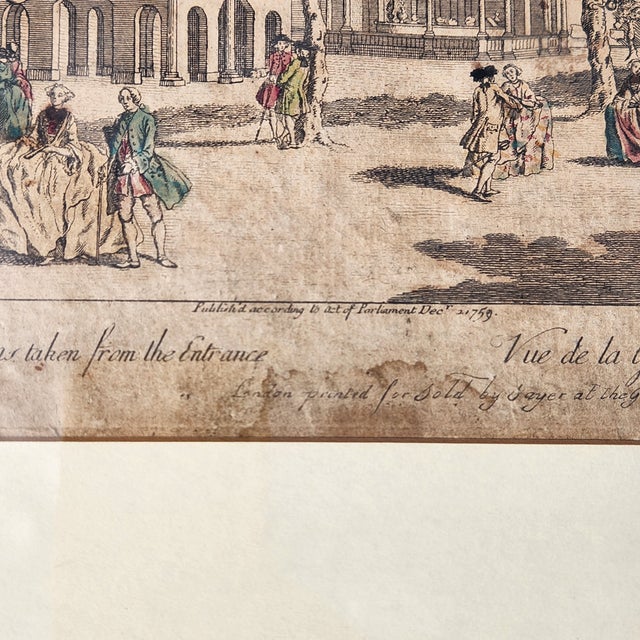 Publish'd according to Act of Parliament Decr. 2 1759
ns taken from the Entrance
Vue de la g
London printed for Sold by Sayer at the G